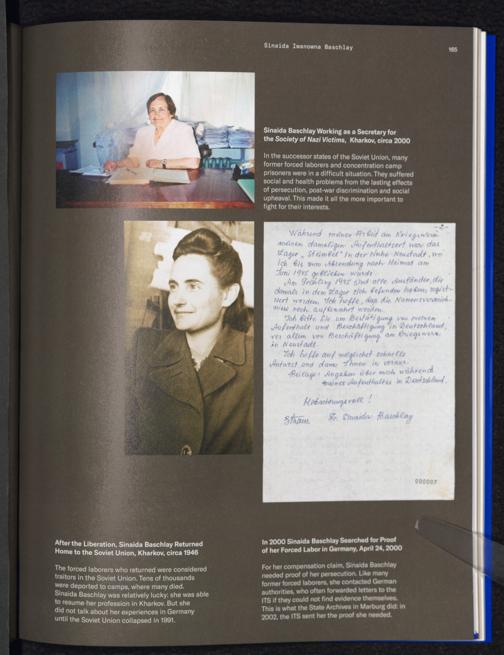 Sinaida Iwanowna Baschlay
165
Sinaida Baschlay Working as a Secretary for
the Society of Nazi Victims, Kharkov, circa 2000
In the successor states of the Soviet Union, many
former forced laborers and concentration camp
prisoners were in a difficult situation. They suffered
social and health problems from the lasting effects
of persecution, post-war discrimination and social
upheaval. This made it all the more important to
fight for their interests.
-2-
Während meiner Arbeit am Kriegswerk
meinen damaligen Aufenthaltsort war das
Lager „Steimbel" in der Nähe Neustadt, wo
ich bis zum Absendung nach Heimat am
Juni 1945 geblieben wurde.
Am Frühling 1945 sind alle Ausländer, die
damals in den Lager sich befunden haben, regist-
riert worden. Ich hoffe, daß die Namensverzeich-
nisse noch aufbewahrt werden.
Ich bitte Sie um Bestätigung von meinem
Aufenthalt und Beschäftigung in Deutschland,
vor allem von Beschäftigung am Kriegswerk
in Neustadt.
Ich hoffe auf möglichst schnelle
Antwort und danke Ihnen in voraus.
Beilage: Angaben über mich während
meines Aufenthaltes in Deutschland.
Hochachtungsvoll!
Fr. Sinaida Baschlay
000007
After the Liberation, Sinaida Baschlay Returned
Home to the Soviet Union, Kharkov, circa 1946
The forced laborers who returned were considered
traitors in the Soviet Union. Tens of thousands
were deported to camps, where many died.
Sinaida Baschlay was relatively lucky: she was able
to resume her profession in Kharkov. But she
did not talk about her experiences in Germany
until the Soviet Union collapsed in 1991.
In 2000 Sinaida Baschlay Searched for Proof
of her Forced Labor in Germany, April 24, 2000
For her compensation claim, Sinaida Baschlay
needed proof of her persecution. Like many
former forced laborers, she contacted German
authorities, who often forwarded letters to the
ITS if they could not find evidence themselves.
This is what the State Archives in Marburg did: in
2002, the ITS sent her the proof she needed.